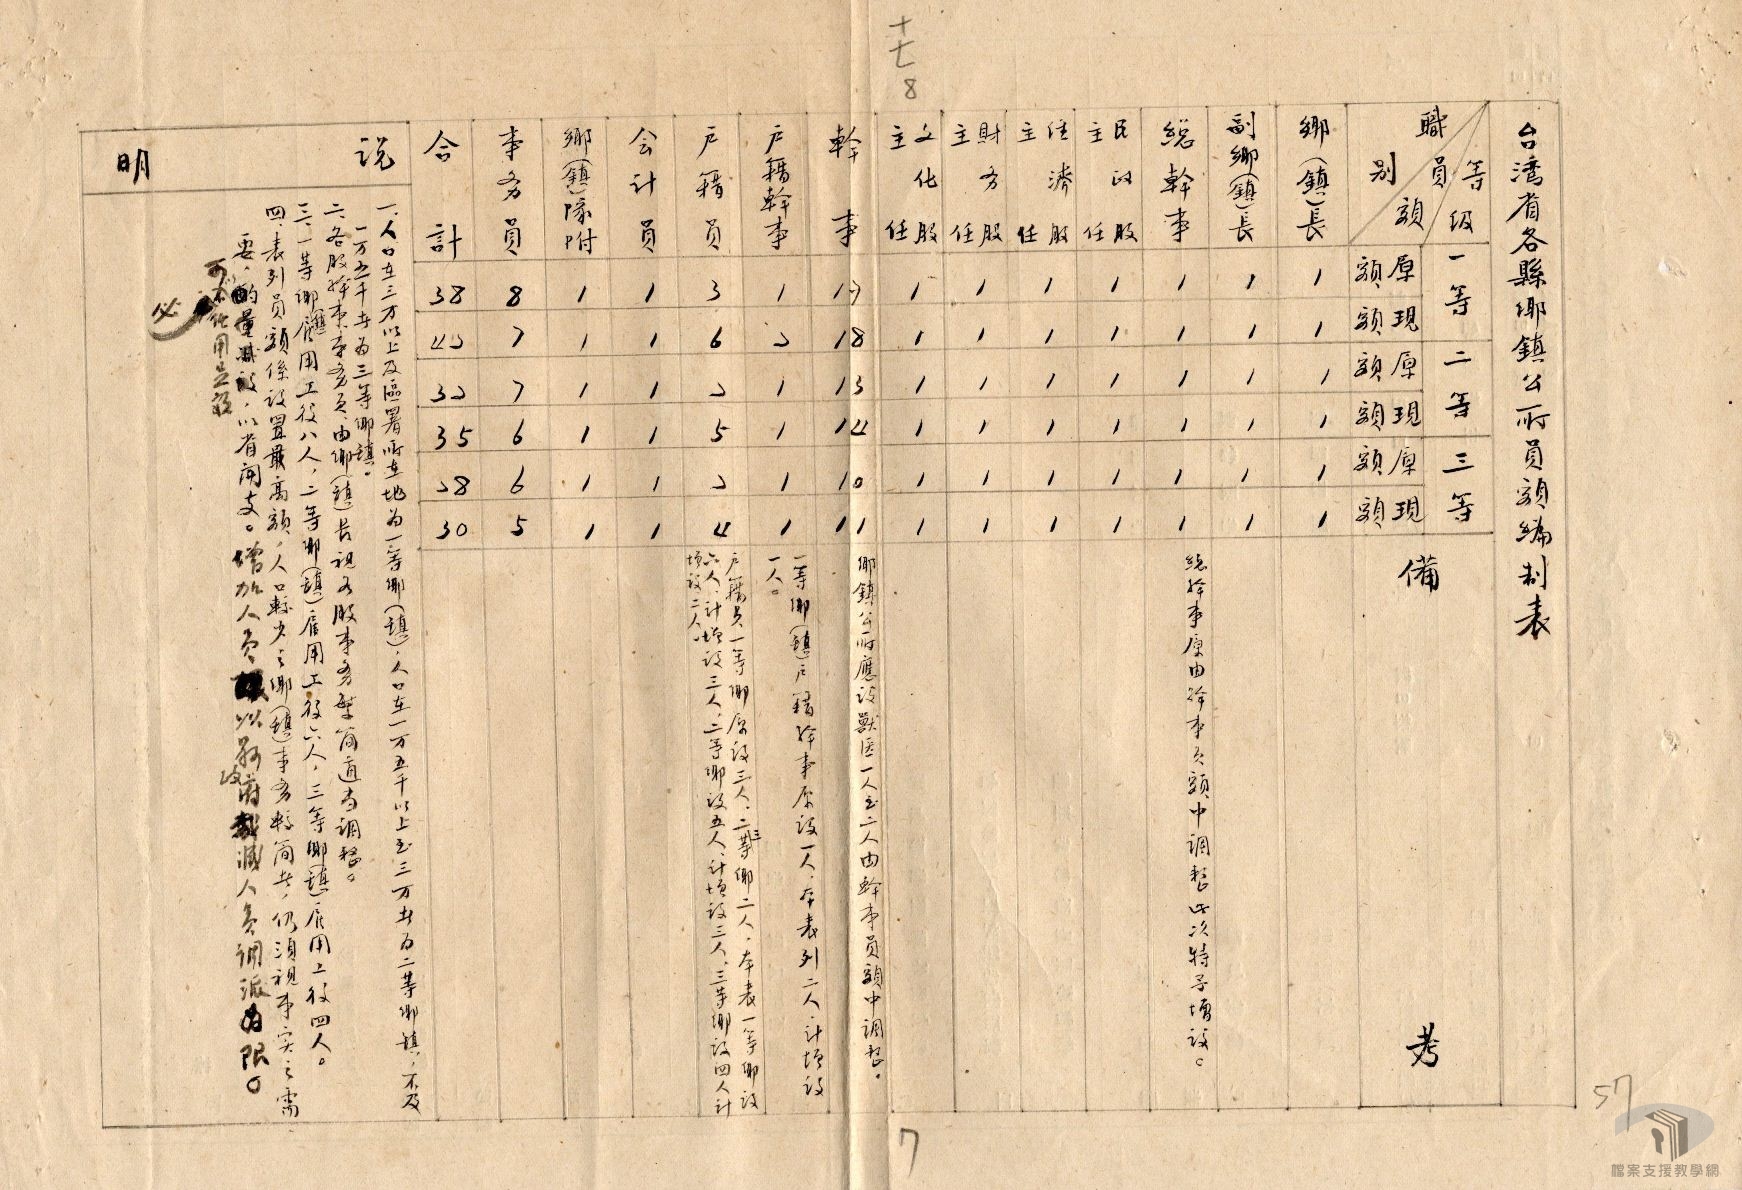 十七 8
台湾省各縣鄉鎮公所員額編制表
等級 職員別 額
一等 原額 現額
二等 原額 現額
三等 原額 現額
備考
鄉(鎮)長 1 1 1 1 1 1
副鄉(鎮)長 1 1 1 1 1 1
總幹事 1 1 1 1 1 1
總幹事原由幹事員額中調整此次特予增設。
民政股主任 1 1 1 1 1 1
经濟股主任 1 1 1 1 1 1
財务股主任 1 1 1 1 1 1
文化股主任 1 1 1 1 1 1
幹事 17 18 13 14 10 11
鄉鎮公所應設獸医一人至二人由幹事員額中調整。
户籍幹事 1 2 1 1 1 1
一等鄉(鎮)户籍幹事原設一人,本表列二人,計增設
一人。
户籍員 3 6 2 5 2 4
户籍員一等鄉原設三人,二三等鄉二人,本表一等鄉設
六人,計增設三人,二等鄉設五人,計增設三人,三等鄉設四人計
增設二人。
会計員 1 1 1 1 1 1
鄉(鎮)隊附 1 1 1 1 1 1
事务員 8 7 7 6 6 5
合計 38 42 32 35 28 30
说明
一、人口在三万以上及區署所在地为一等鄉(鎮),人口在一万五千以上至三万者为二等鄉鎮,不及
一万五千者为三等鄉鎮。
二、各股幹事事务員,由鄉(鎮)長視各股事务繁简適当調整。
三、一等鄉(鎮)雇用工役八人,二等鄉(鎮)雇用工役六人,三等鄉(鎮)雇用工役四人。
四、表列員額係設置最高額,人口較少之鄉(鎮)事务較简者,仍須視事实之需
要,酌量减設,以省開支。增加人员以縣政府裁減人員調派为限。
57
7
檔案支援教學網